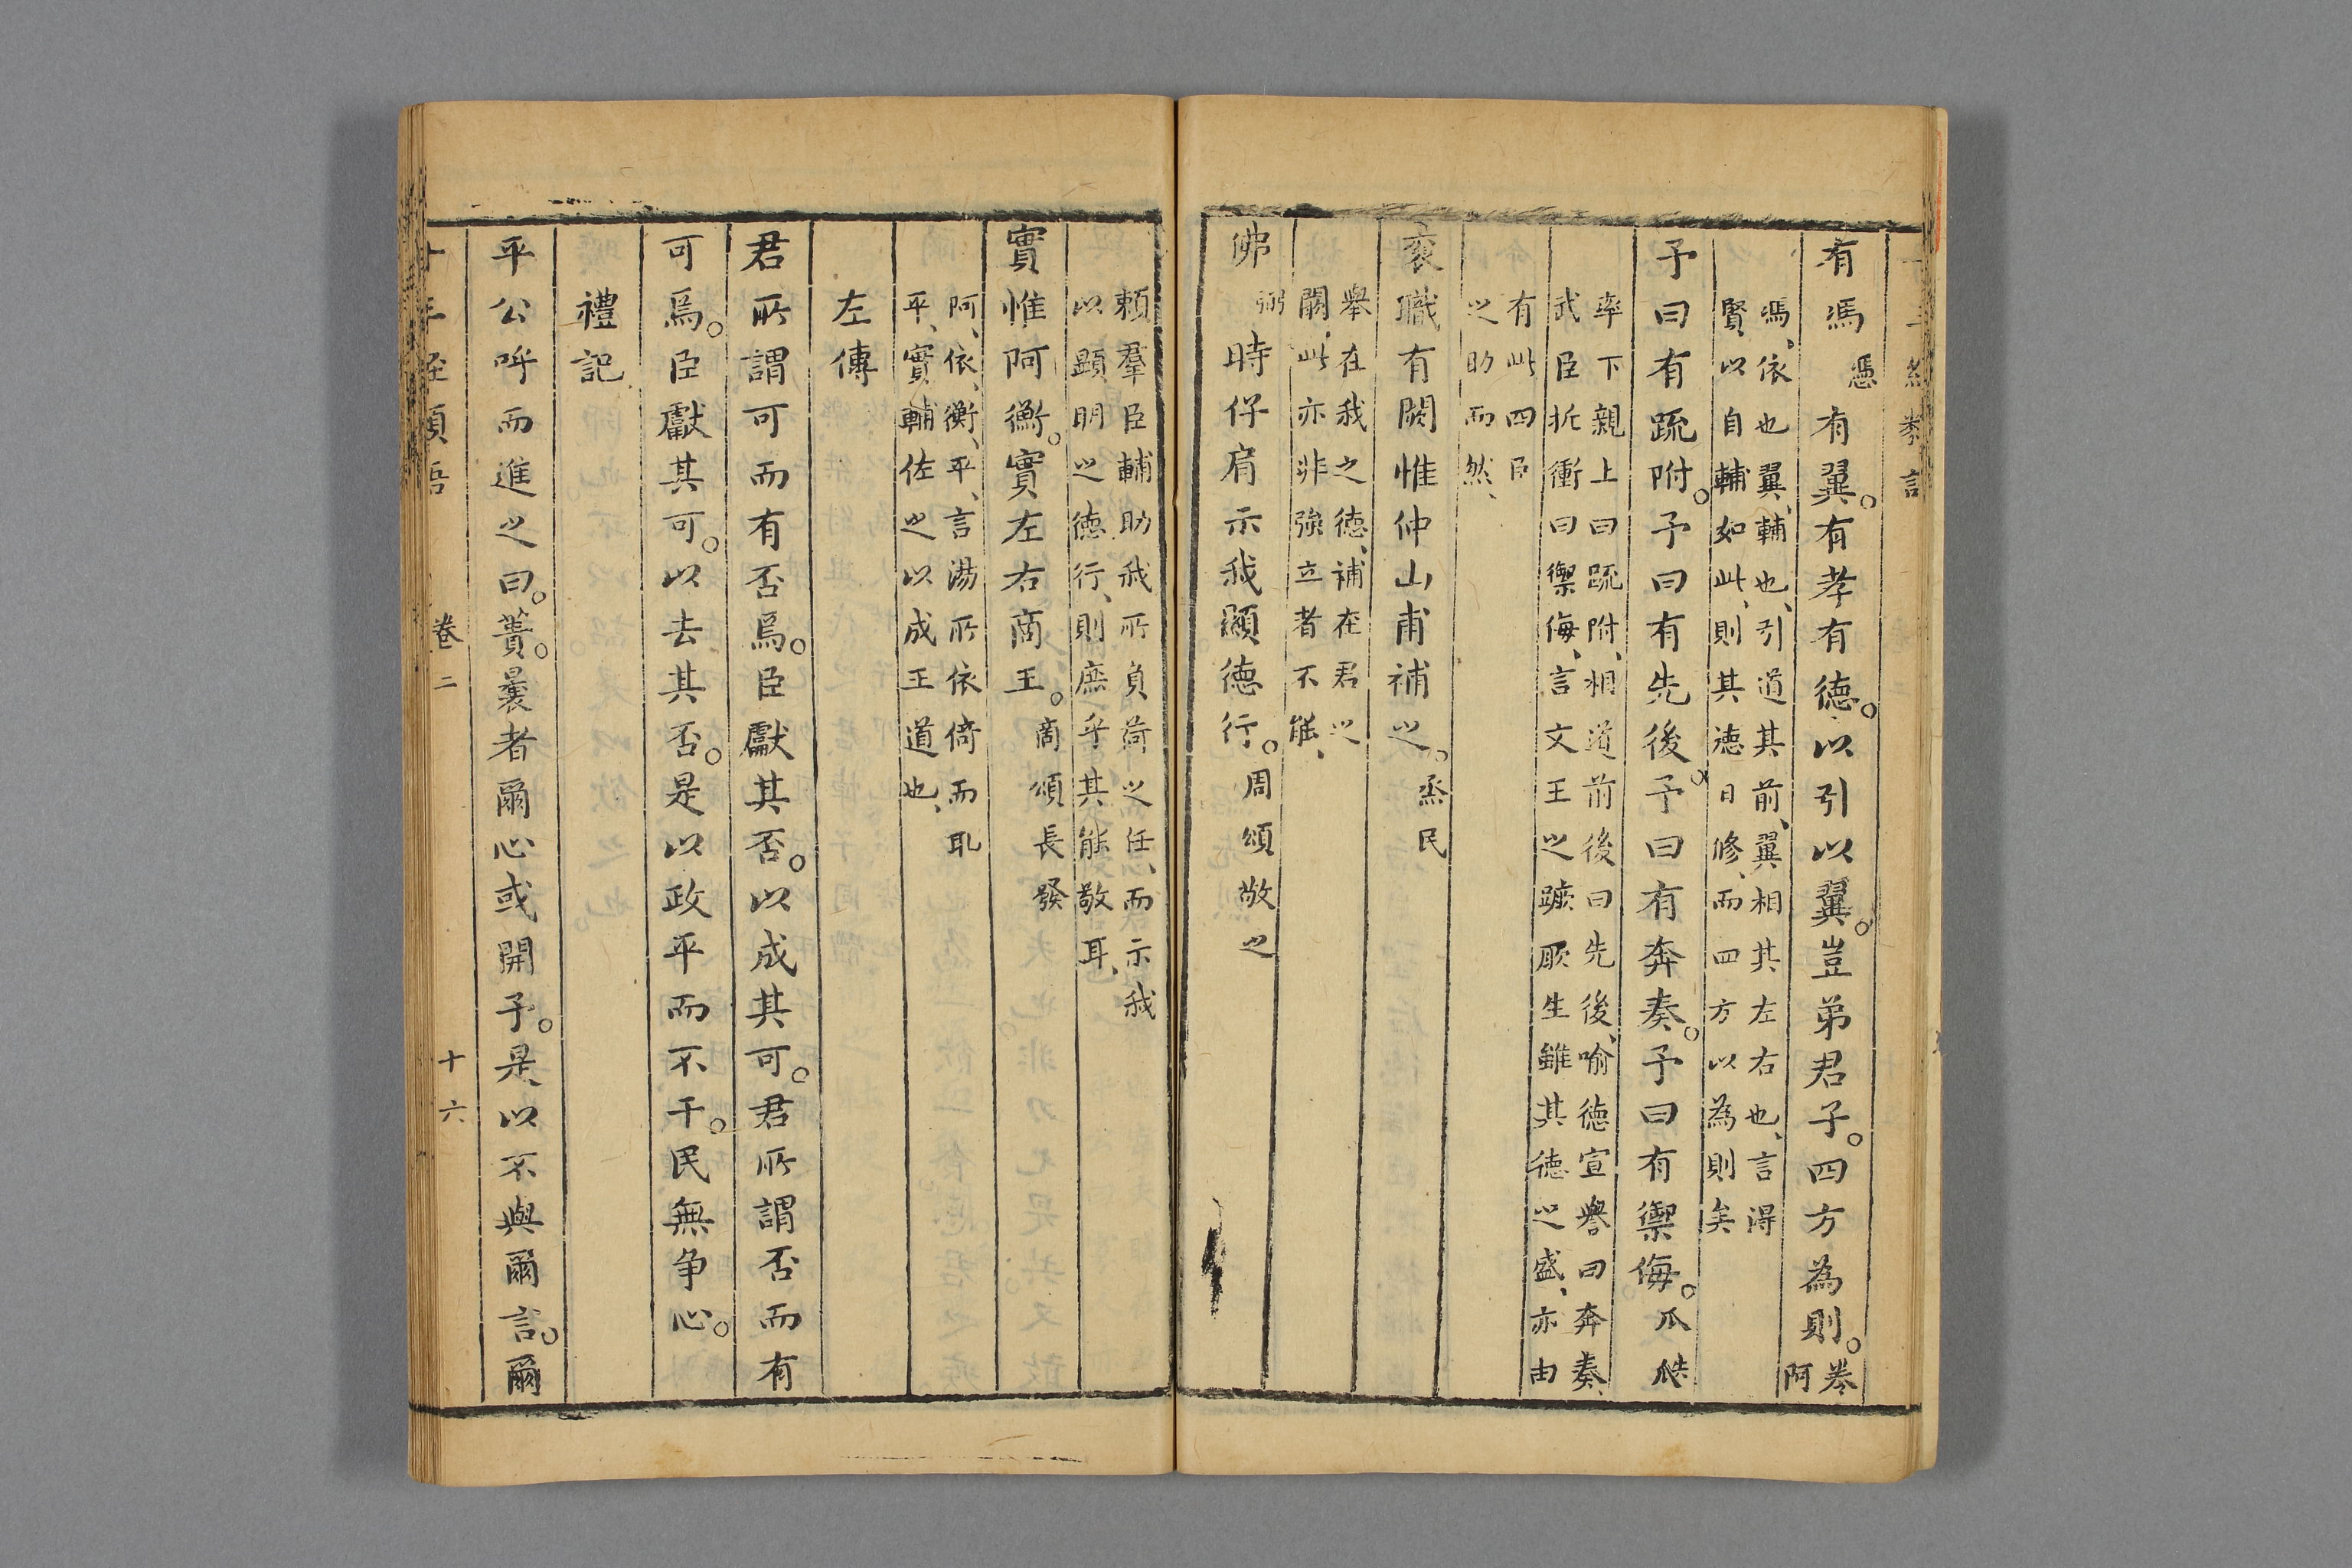 有馮憑有翼。有孝有德。以引以翼。豈弟君子。四方為則。卷阿
馮、依也、翼、輔也、引道其前、翼相其左右也、言得
賢以自輔如此、則其德日修、而四方以為則矣
予曰有疏附。予曰有先後。予曰有奔奏。予曰有禦侮。爪瓞
率下親上曰疏附、相道前後曰先後、喻德宣譽曰奔奏、
武臣折衝曰禦侮、言文王之蹶厥生雖其德之盛、亦由
有此四臣
之助而然、
袞職有闕惟仲山甫補之。烝民
舉在我之德、補在君之
闕、此亦非強立者不能、
佛弼時仔肩示我顯德行。周頌敬之
賴羣臣輔助我所負荷之任、而示我
以顯明之德行、則庶乎其能敬耳、
實惟阿衡。實左右商王。商頌長發
阿、依、衡、平、言湯所依倚而取
平、實輔佐之以成王道也、
左傳
君所謂可而有否焉。臣獻其否。以成其可。君所謂否而有
可焉。臣獻其可。以去其否。是以政平而不干。民無争心。
禮記
平公呼而進之曰。蕢。曩者爾心或開予。是以不與爾言。爾
卷二 十六